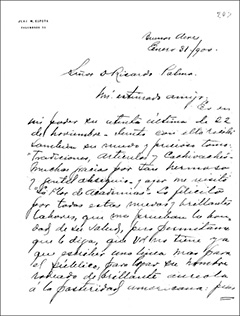 207
JUAN M. ESPORA
Buenos Aires,
Enero 31/900.
Señor D. Ricardo Palma.
Mi estimado amigo:
Es en
mi poder su atenta última de 22
de noviembre. Junto con ella recibí
también su nuevo y precioso tomo
"Tradiciones, Artículos y Cachivaches."
Muchas gracias por tan hermoso
y gentil obsequio, y por mi
La Flor de Academias. Lo felicito
por todas estas nuevas y brillantes
labores, que me prueban la bon-
dad de su salud, pero permítame
que le diga, que Vd. no tiene ya
que escribir una línea más para
el público, para legar su nombre
rodeado de brillante aureola
á la posteridad americana: pues